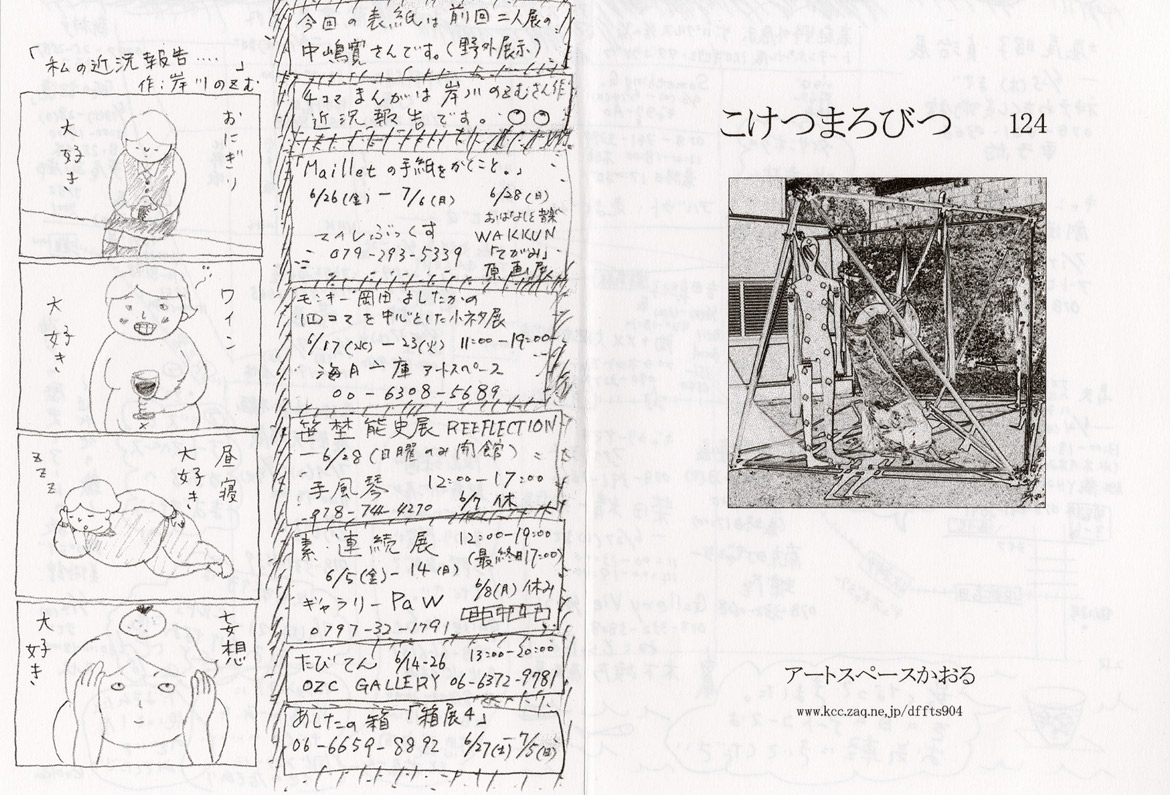 「私の近況報告‥‥」
作:岸川のぞむ
おにぎり
大好き
ワイン
大好き
昼寝
大好き
zzz
妄想
大好き
今回の表紙は前回二人展の
中嶋寛さんです。(野外展示)
4コマまんがは岸川のぞむさん作
近況報告です。
「Mailletの手紙をかくこと。」
6/26(金)-7/6(月) 6/28(日)
おはなしと音楽
マイレぶっくす WAKKUN
079-293-5339 「てがみ」
原画展
モンキー岡田よしたかの
四コマを中心とした小ネタ展
6/17(水)-23(火) 11:00-19:00
海月文庫アートスペース
00-6308-5689
笹埜能史展 REEFLECTION
-6/28(日曜のみ開館)
手風琴 12:00-17:00
078-744-4270 休
素・連続展 12:00-19:00
(最終日17:00)
6/5(金)-14(日)
6/8(月)休み
ギャラリーPaW
0797-32-1791
たびてん 6/14-26 13:00-20:00
OZC GALLERY 06-6372-9781
あしたの箱 「箱展4」
06-6659-8892 6/27(土) 7/5(日)
こけつまろびつ 124
アートスペースかおる
www.kcc.zaq.ne.jp/dffts904